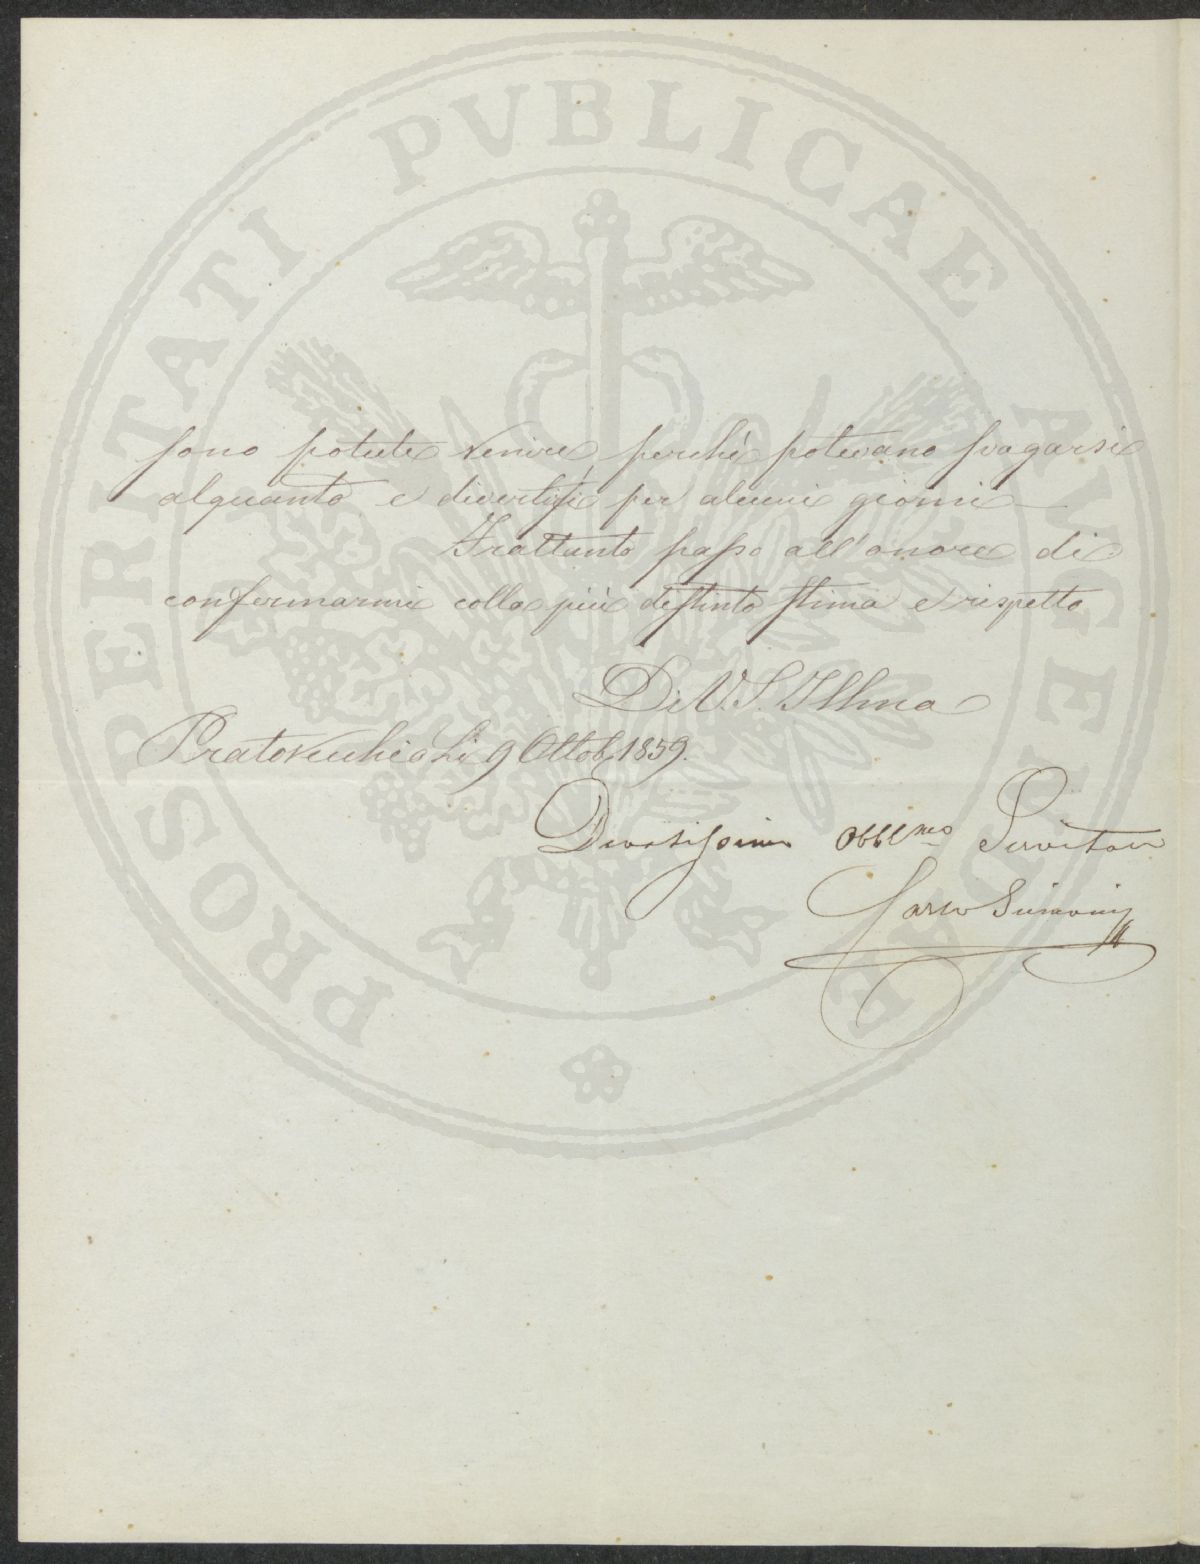 PROSPERITATI PVBLICAE AVGENDAE
sono potute venire, perchè potevano svagarsi
alquanto e divertissi per alcuni giorni
Frattanto passo all'onore di
confermarmi colla più distinta stima e rispetto
Di V. S. Illma
Pratovecchio Li 9 Ottob. 1859.
Devotissimo Obblmo Servitore
Carlo Simonij